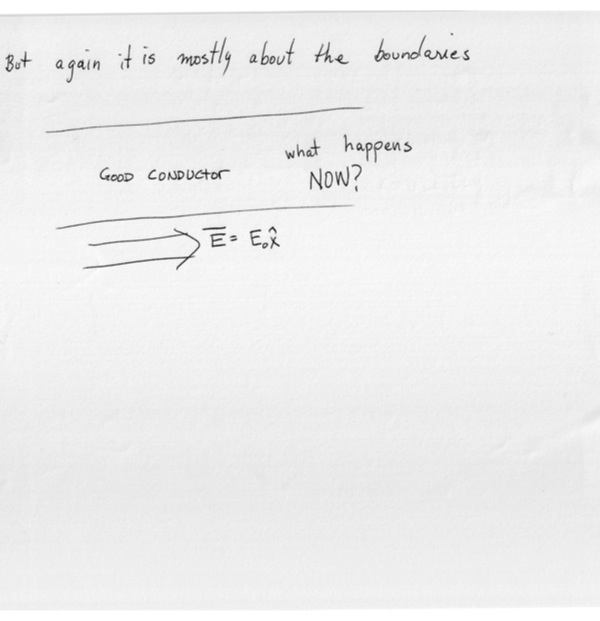 But again it is mostly about the boundaries
what happens
GOOD CONDUCTOR NOW?
E̅ = E₀x̂